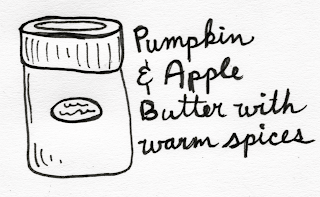 Pumpkin
& Apple
Butter with
warm spices